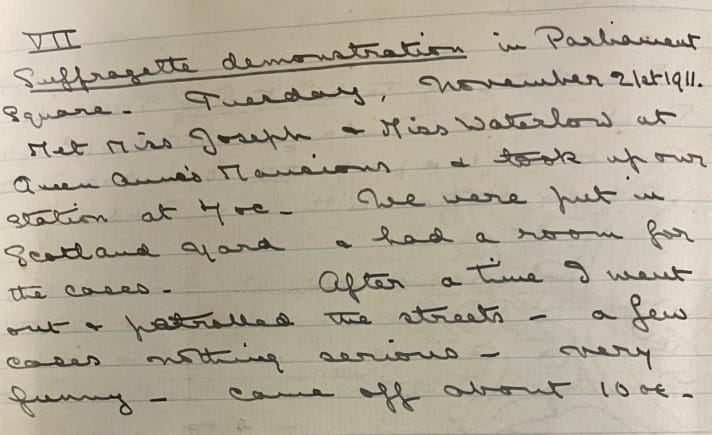 VII
Suffragette demonstration in Parliament
Square - Tuesday, November 21st 1911.
Met Miss Joseph & Miss Waterlow at
Queen Anne's Mansions & took up our
station at 7 oc - We were put in
Scotland Yard & had a room for
the cases - After a time I went
out & patrolled the streets - a few
cases nothing serious - very
funny - came off about 10 oc -